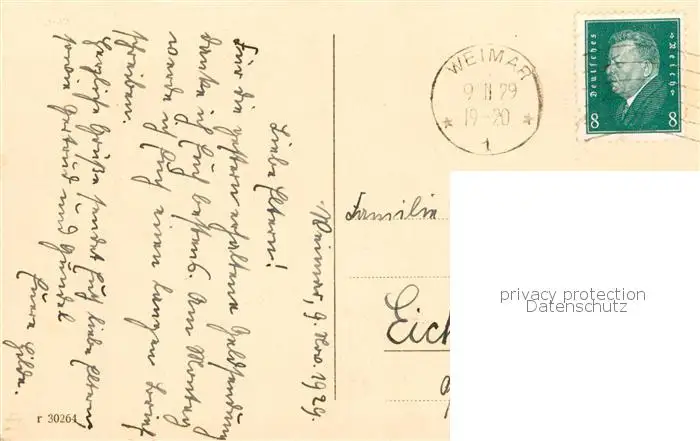 Weimar, 9. Nov. 1929.
Liebe Eltern!
Für die gestern erhaltene Geldsendung
danke ich Euch bestens. Am Montag
werde ich Euch einen langen Brief
schreiben.
Herzliche Grüße sendet Euch liebe Eltern
sowie Gertrud und Gundel
Euere Hilde.
r 30264
WEIMAR
9 11 29
19-20
* 1 *
Deutsches Reich
8 8
Familie
Eich
privacy protection
Datenschutz